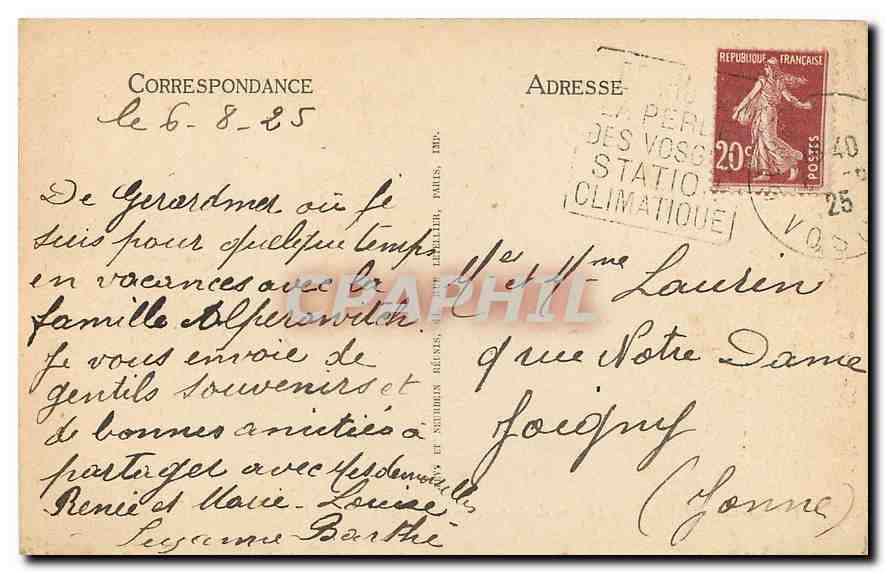 CORRESPONDANCE
le 6-8-25
De Gérardmer où je
suis pour quelque temps
en vacances avec la
famille Alperowitch.
Je vous envoie de
gentils souvenirs et
de bonnes amitiés à
partager avec Mesdemoiselles
Renée et Marie-Louise
Suzanne Barthé
ET NEURDEIN RÉUNIS, RUE LETELLIER, PARIS, IMP.
ADRESSE
LA PERL
DES VOSG
STATIO
CLIMATIQUE
REPUBLIQUE FRANÇAISE
20c
POSTES
40
25
VOS
Mr et Mme Laurin
9 rue Notre Dame
Joigny
(Yonne)
CPAPHIL